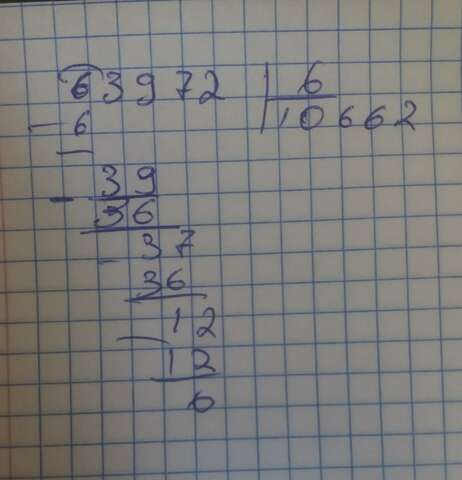 63972 6
- 6 10662
- 39
36
- 37
36
- 12
12
0